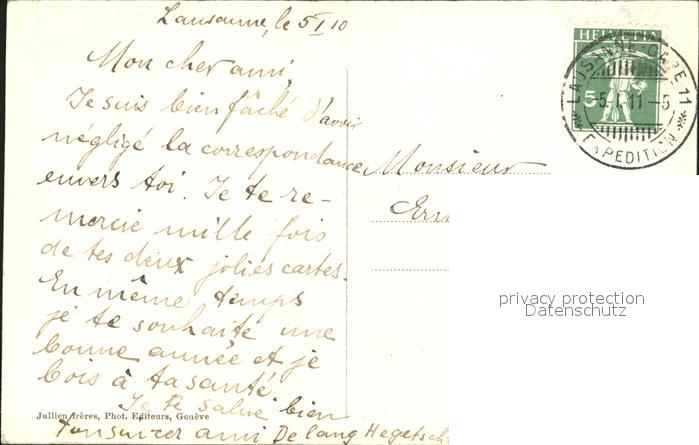 Lausanne, le 5 I 10
Mon cher ami,
Je suis bien fâché d'avoir
négligé la correspondance
envers toi. Je te re-
mercie mille fois
de tes deux jolies cartes.
En même temps
je te souhaite une
bonne année et je
bois à ta santé
Je te salue bien
ton ami De lang Hegetsch
Jullien frères, Phot. Editeurs, Genève
HELVETIA
5
LAUSANNE-GARE 11
5.I.11-5
EXPEDITION
Monsieur
privacy protection
Datenschutz